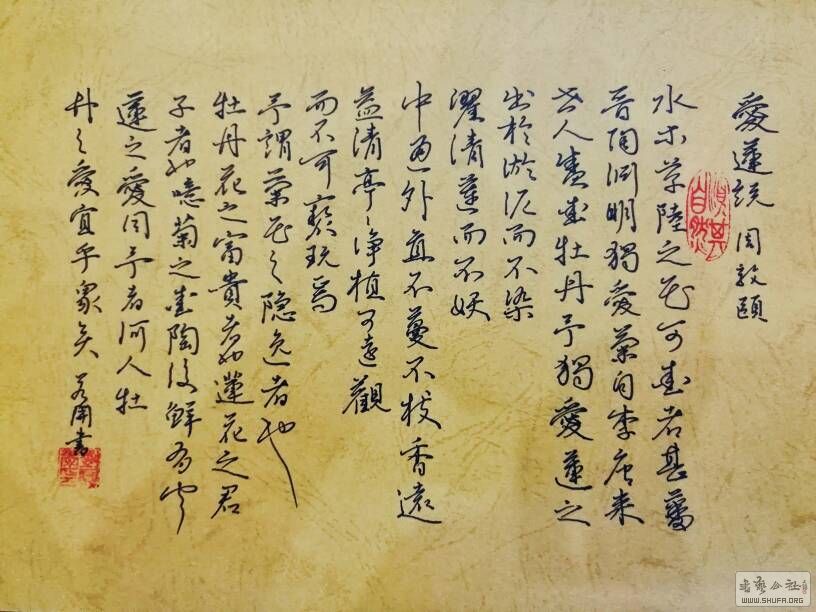 愛蓮説 周敦頤
順其自然
水木草陸之花可愛者甚蕃
晉陶渊明獨愛菊自李唐来
世人盛愛牡丹予獨愛蓮之
出於淤泥而不染
濯清蓮而不妖
中通外直不蔓不枝香遠
益清亭々净植可遠觀
而不可褻玩焉
予謂菊花之隐逸者也
牡丹花之富貴者也蓮花之君
子者也噫菊之愛陶後鮮有聞
蓮之愛同予者何人牡
丹之愛宜乎衆矣 書
書藝公社
WWW.SHUFA.ORG